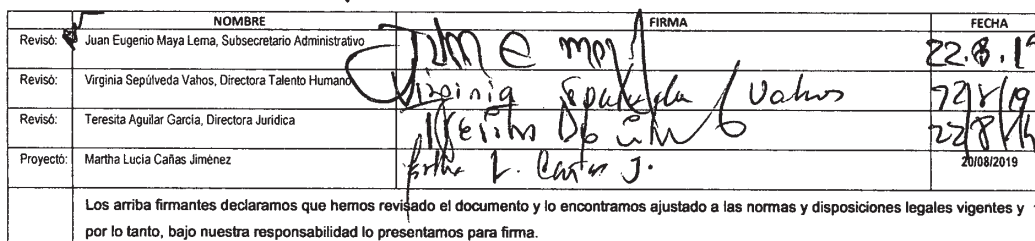 NOMBRE FIRMA FECHA
Revisó: Juan Eugenio Maya Lema, Subsecretario Administrativo 22.8.19
Revisó: Virginia Sepúlveda Vahos, Directora Talento Humano Virginia Sepulveda Vahos 22/8/19
Revisó: Teresita Aguilar García, Directora Jurídica 22/8/19
Proyectó: Martha Lucía Cañas Jiménez Martha L. Cañas J. 20/08/2019
Los arriba firmantes declaramos que hemos revisado el documento y lo encontramos ajustado a las normas y disposiciones legales vigentes y
por lo tanto, bajo nuestra responsabilidad lo presentamos para firma.